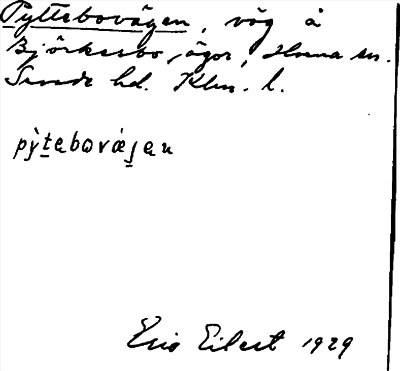 Pyttebovägen, väg å
Björkesbo, ägor, Horna sn.
Sunds hd. Klm. l.
pỳtebovǽgen
Eric Eilert 1929